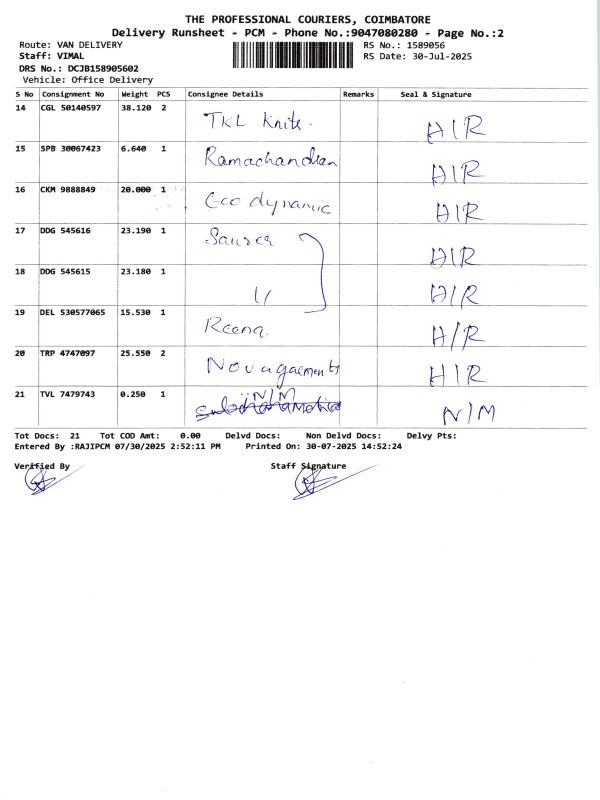 THE PROFESSIONAL COURIERS, COIMBATORE
Delivery Runsheet - PCM - Phone No.:9047080280 - Page No.:2
Route: VAN DELIVERY
RS No.: 1589056
Staff: VIMAL
RS Date: 30-Jul-2025
DRS No.: DCJB158905602
Vehicle: Office Delivery
S No Consignment No Weight PCS Consignee Details Remarks Seal & Signature
14 CGL 50140597 38.120 2 TKL Knits. H/R
15 SPB 30067423 6.640 1 Ramachandran H/R
16 CKM 9888849 20.000 1 Eco dynamic H/R
17 DDG 545616 23.190 1 Saurer H/R
18 DDG 545615 23.180 1 H/R
19 DEL 530577065 15.530 1 Reena H/R
20 TRP 4747097 25.550 2 Nova garments H/R
21 TVL 7479743 0.250 1 N/M N/M
Tot Docs: 21 Tot COD Amt: 0.00 Delvd Docs: Non Delvd Docs: Delvy Pts:
Entered By :RAJIPCM 07/30/2025 2:52:11 PM Printed On: 30-07-2025 14:52:24
Verified By Staff Signature